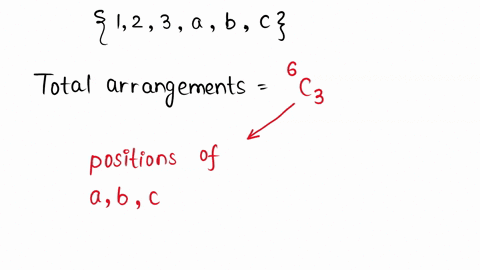 {1, 2, 3, a, b, c}
Total arrangements = ⁶C₃
positions of
a, b, c